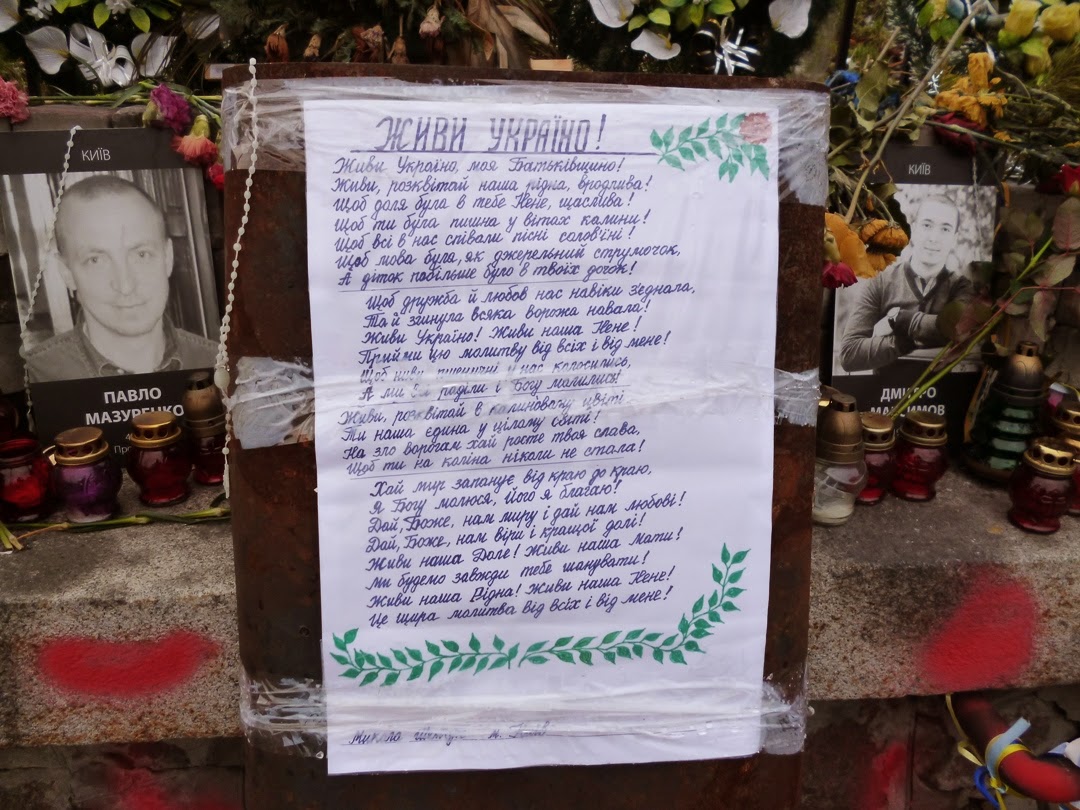 ЖИВИ УКРАЇНО!
Живи Україно, моя Батьківщино!
Живи, розквітай наша рідна, вродлива!
Щоб доля була в тебе Нене, щаслива!
Щоб ти була пишна у вітах калини!
Щоб всі в нас співали пісні солов'їні!
Щоб мова була, як джерельний струмочок,
А діток побільше було в твоїх дочок!
Щоб дружба й любов нас навіки з'єднала,
Та й згинула всяка ворожа навала!
Живи Україно! Живи наша Нене!
Прийми цю молитву від всіх і від мене!
Щоб ниви пшеничні у нас колосились,
А ми всі раділи і Богу молилися!
Живи, розквітай в калиновому цвіті
Ти наша єдина у цілому світі!
На зло ворогам хай росте твоя слава,
Щоб ти на коліна ніколи не стала!
Хай мир запанує від краю до краю,
Я Богу молюся, його я благаю!
Дай, Боже, нам миру і дай нам любові!
Дай, Боже, нам віри і кращої долі!
Живи наша Доле! Живи наша мати!
Ми будемо завжди тебе шанувати!
Живи наша Рідна! Живи наша Нене!
Це щира молитва від всіх і від мене!
Микола м. Київ
КИЇВ
ПАВЛО
МАЗУРЕНКО
КИЇВ
ДМИТРО
МАКСИМОВ